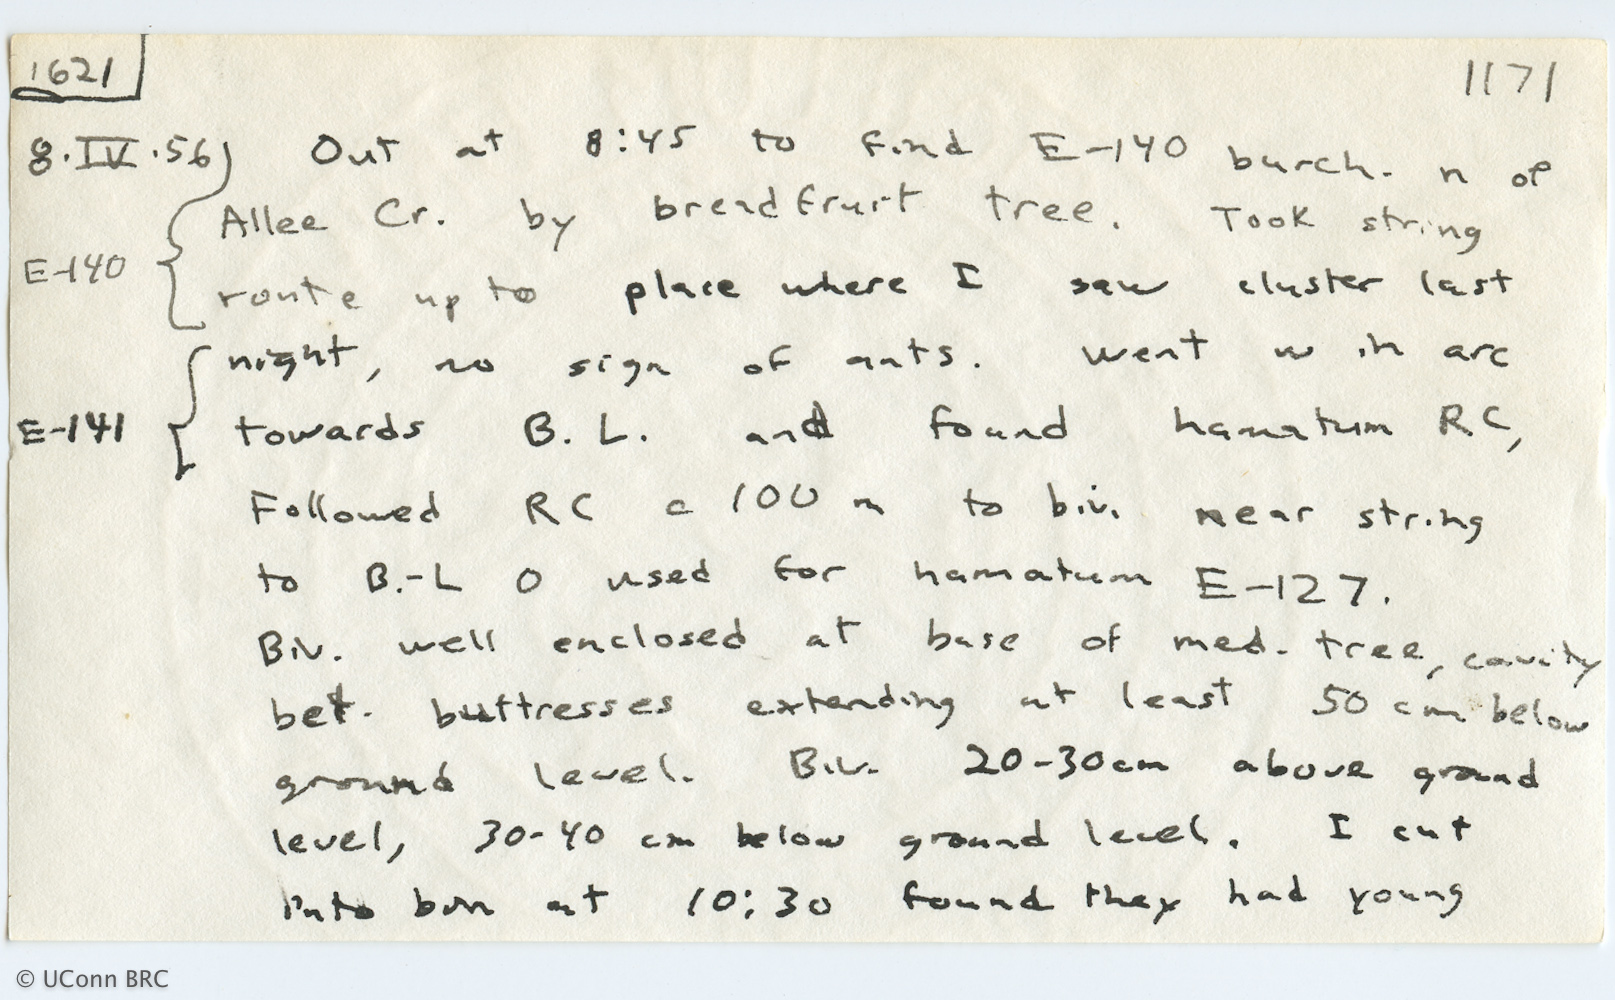 1621
1171
8.IV.56) Out at 8:45 to find E-140 burch. n of
Allee Cr. by breadfruit tree. Took string
E-140
route up to place where I saw cluster last
night, no sign of ants. Went w in arc
E-141
towards B. L. and found hamatum RC,
Followed RC c 100 m to biv. near string
to B.-L O used for hamatum E-127.
Biv. well enclosed at base of med. tree, cavity
bet. buttresses extending at least 50 cm below
ground level. Biv. 20-30cm above ground
level, 30-40 cm below ground level. I cut
into at 10:30 found they had young
© UConn BRC